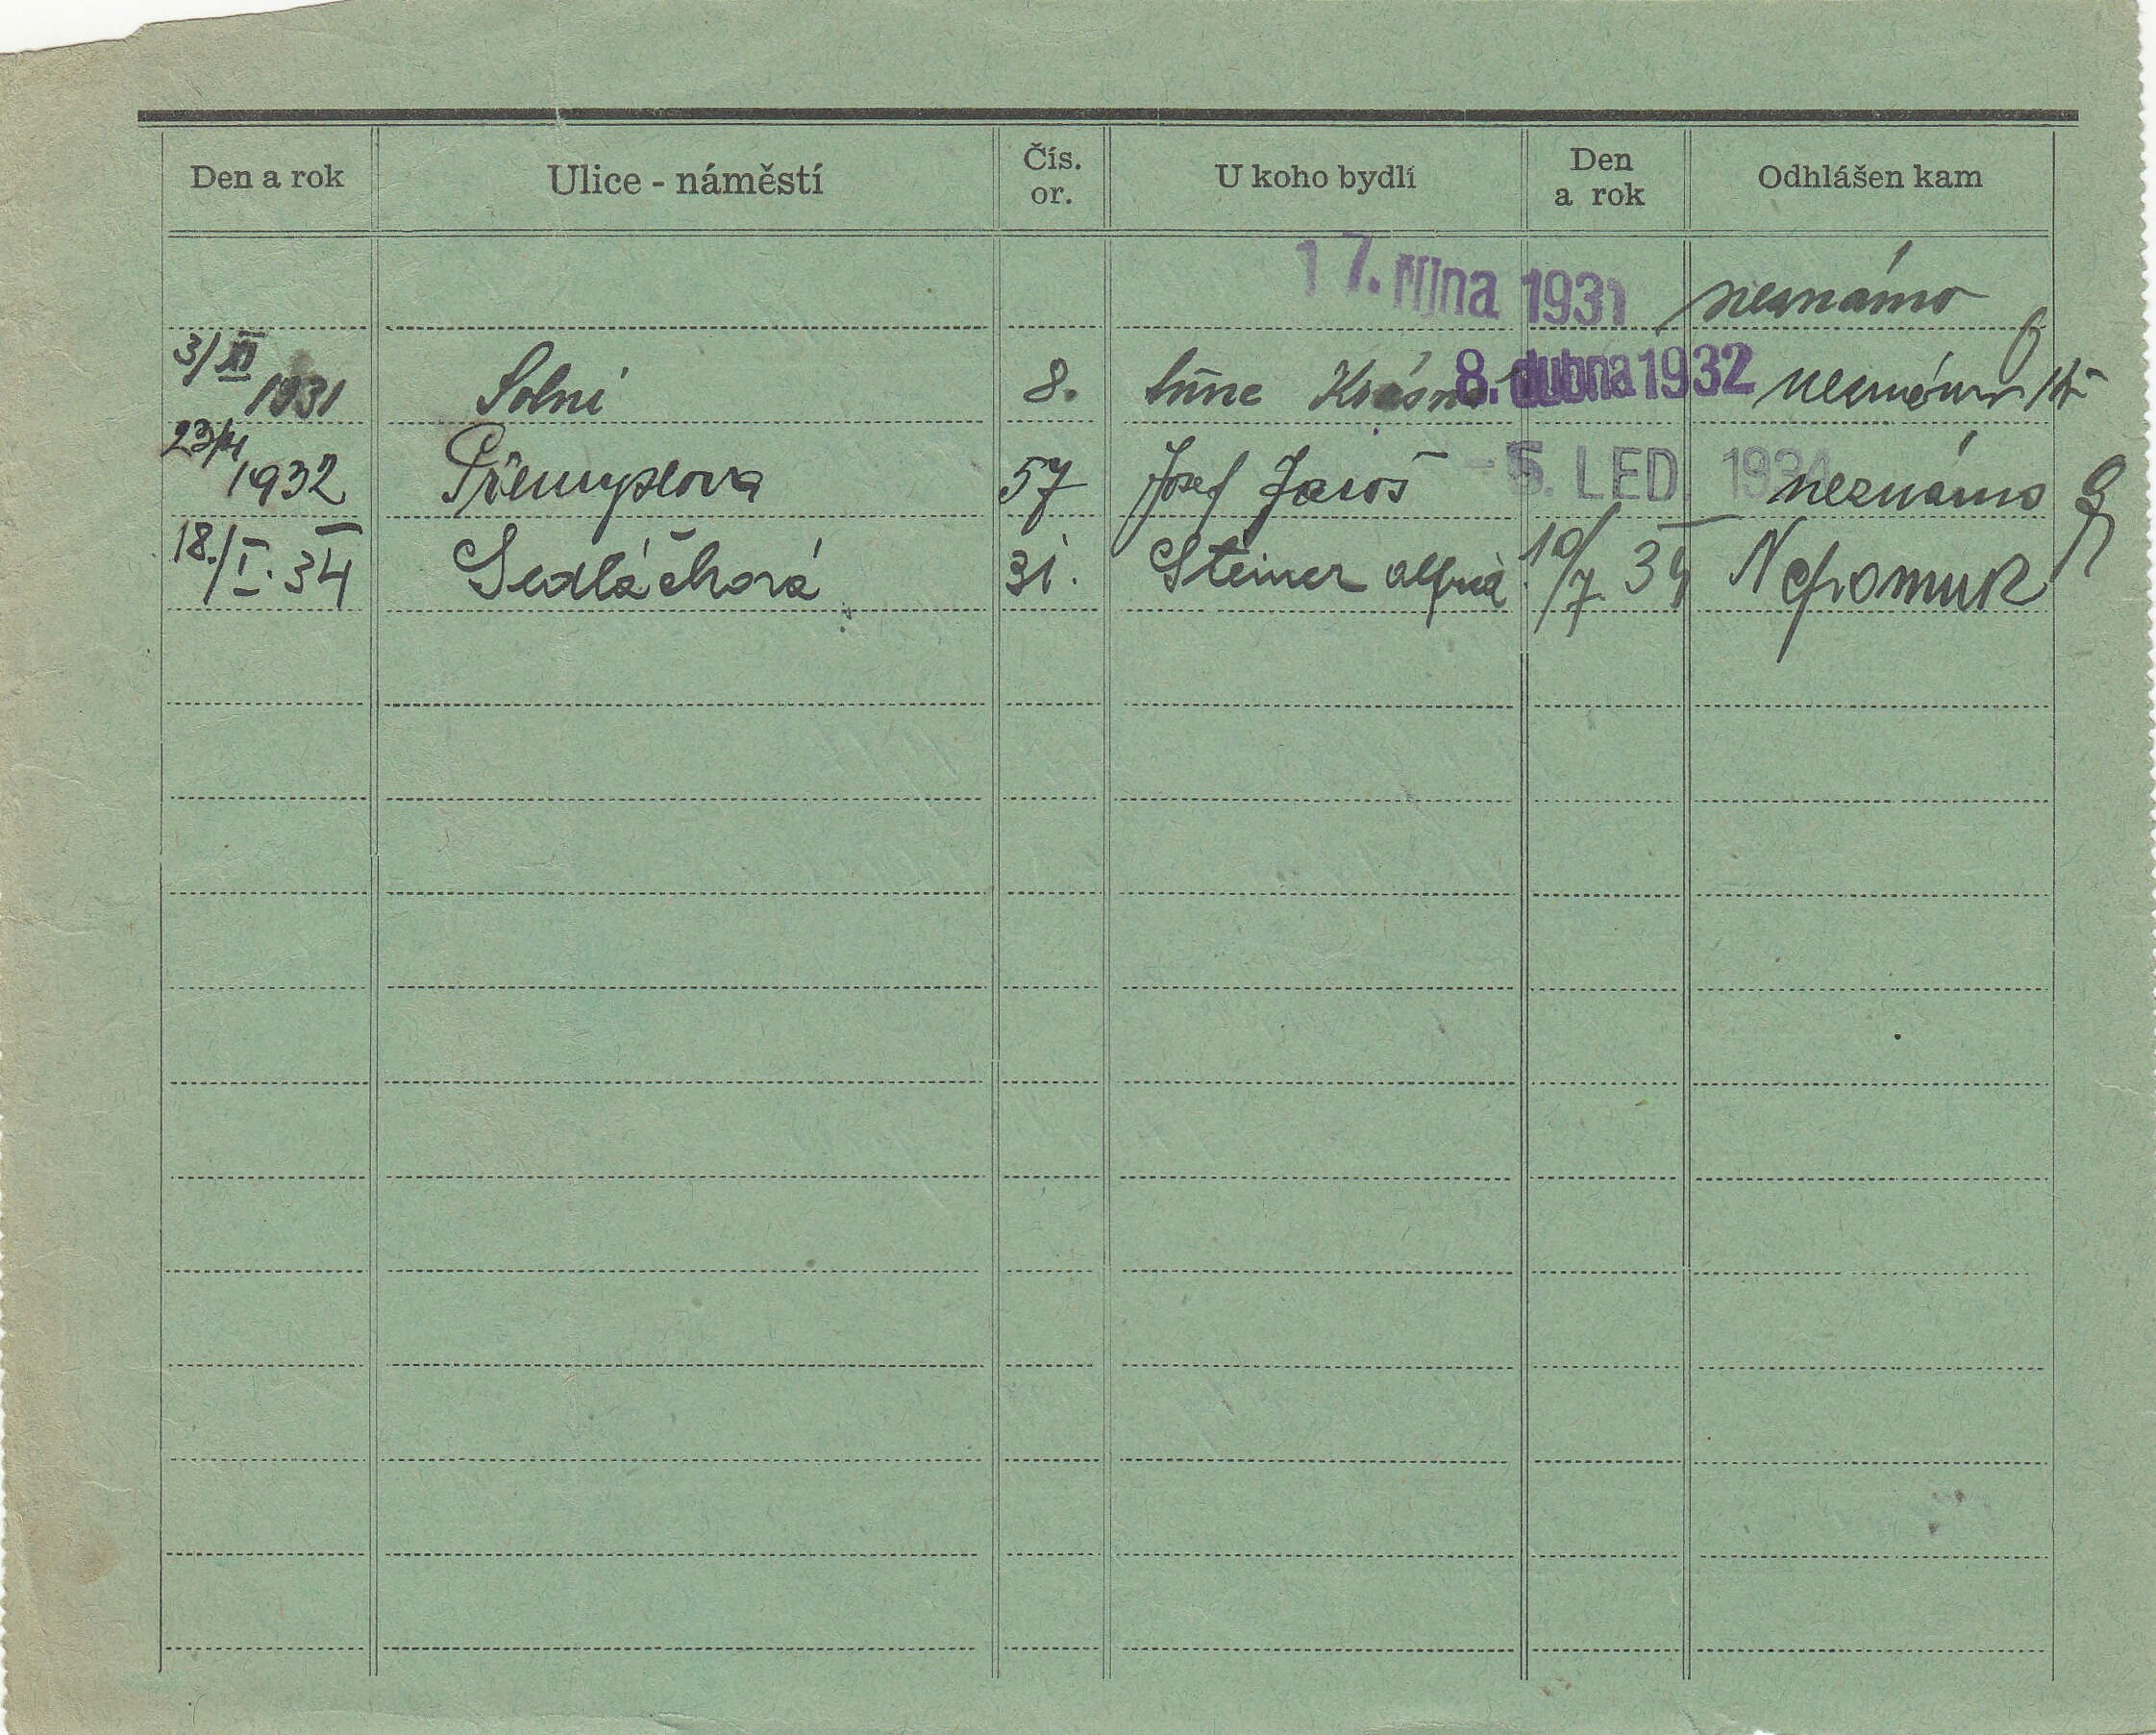 Den a rok Ulice - náměstí Čís. or. U koho bydlí Den a rok Odhlášen kam
17. října 1931 neznámo
3/XI 1931 Solní 8. Krásn 8. dubna 1932 neznámo
1932 Přemyslova 57 Josef Jaroš - 5. LED. 1934 neznámo
18./I. 34 Sedláčková 31. Steiner 10/7. 34 Nepomuk